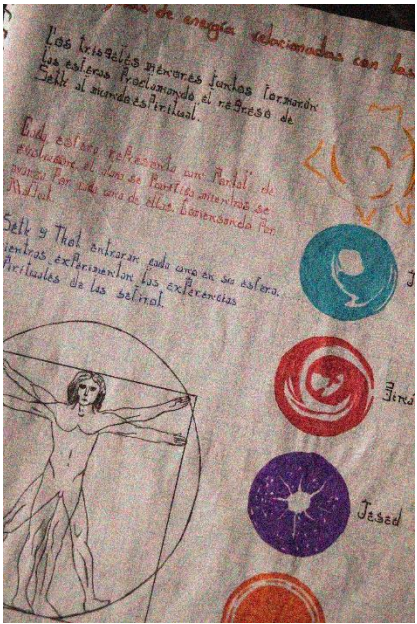 de energía relacionadas con las
Los trisqueles menores juntos formarán
las esferas Proclamando el regreso de
Seth al mundo espiritual.
Cada esfera representa un "Portal" de
el alma se Purifica mientras se
avanza Por cada una de ellas Comensando Por
Seth y Thot entraran cada uno en su esfera,
mientras experimentan las experencias
Pirituales de las sefirot.
Jesed